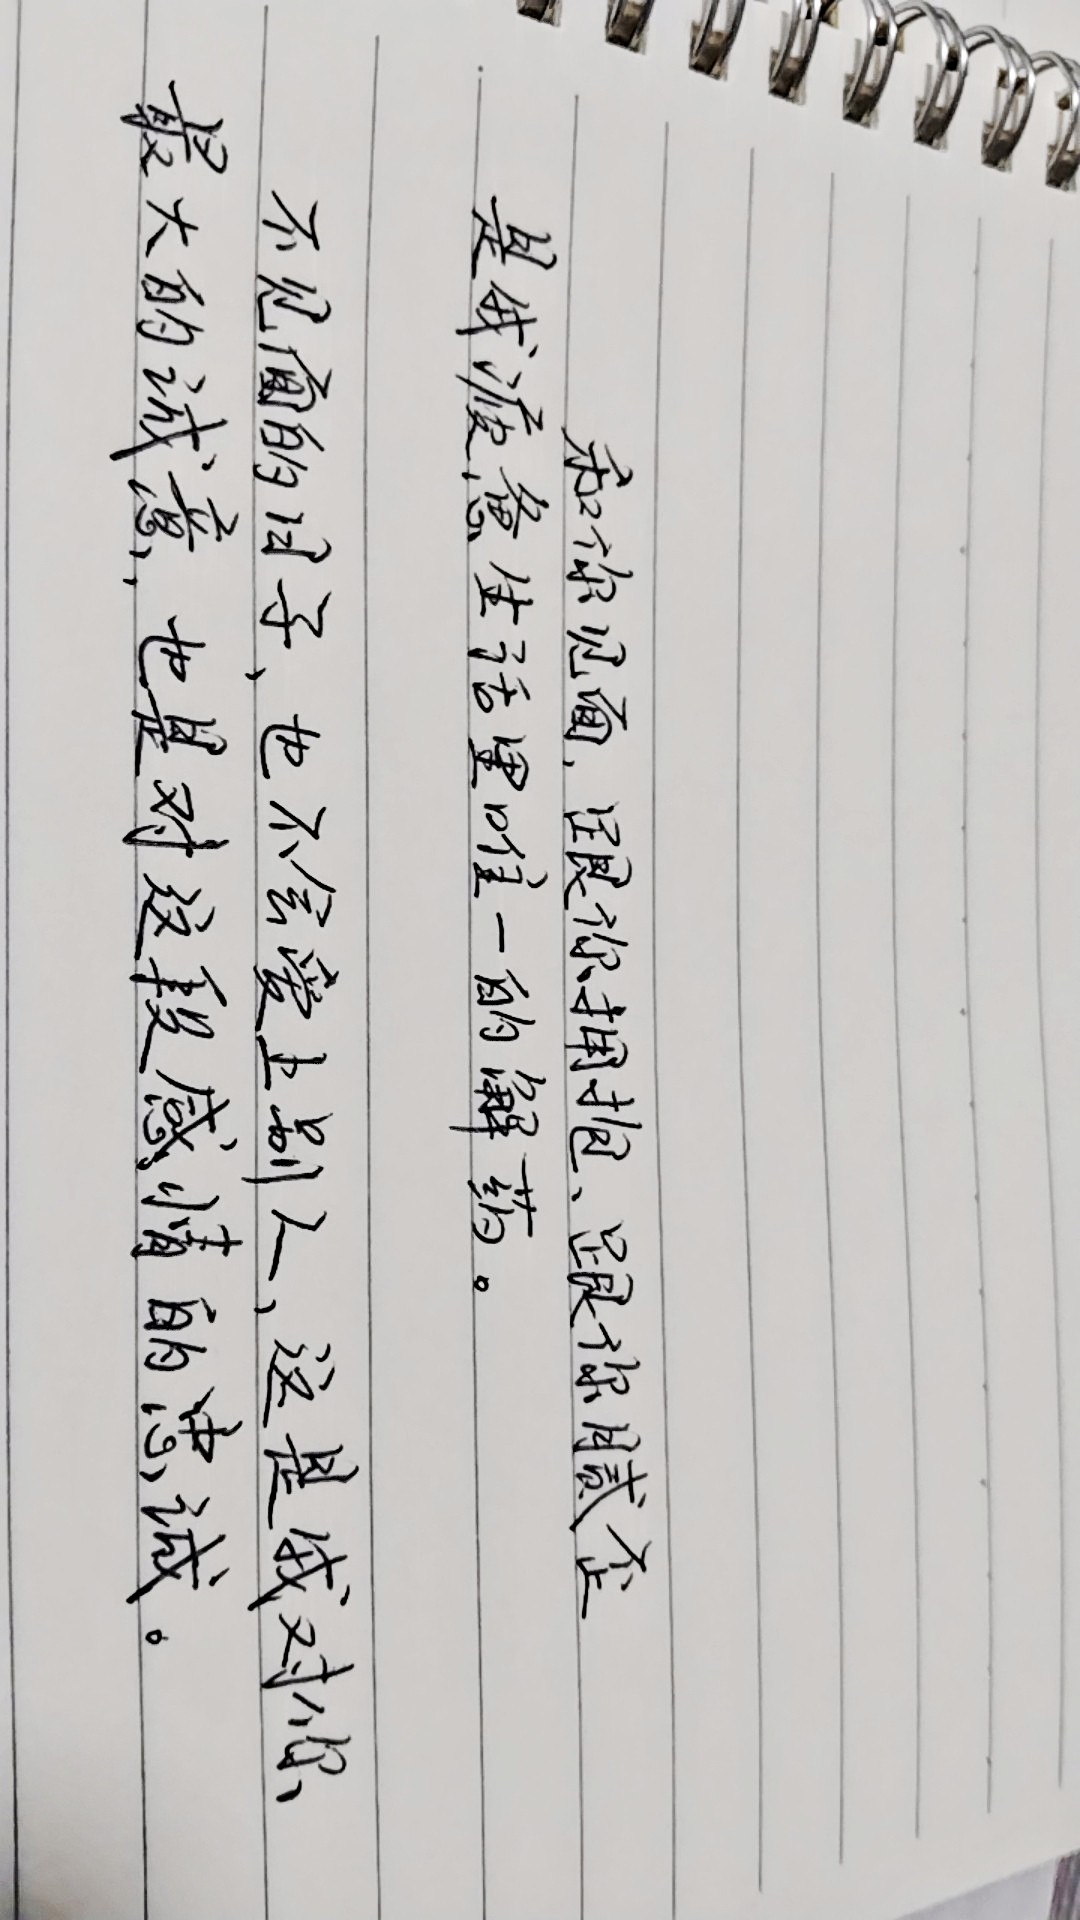 和你见面，跟你拥抱、跟你腻歪
是我疲惫生活里唯一的解药。
不见面的日子、也不会爱上别人，这是我对你
最大的诚意，也是对这段感情的忠诚。